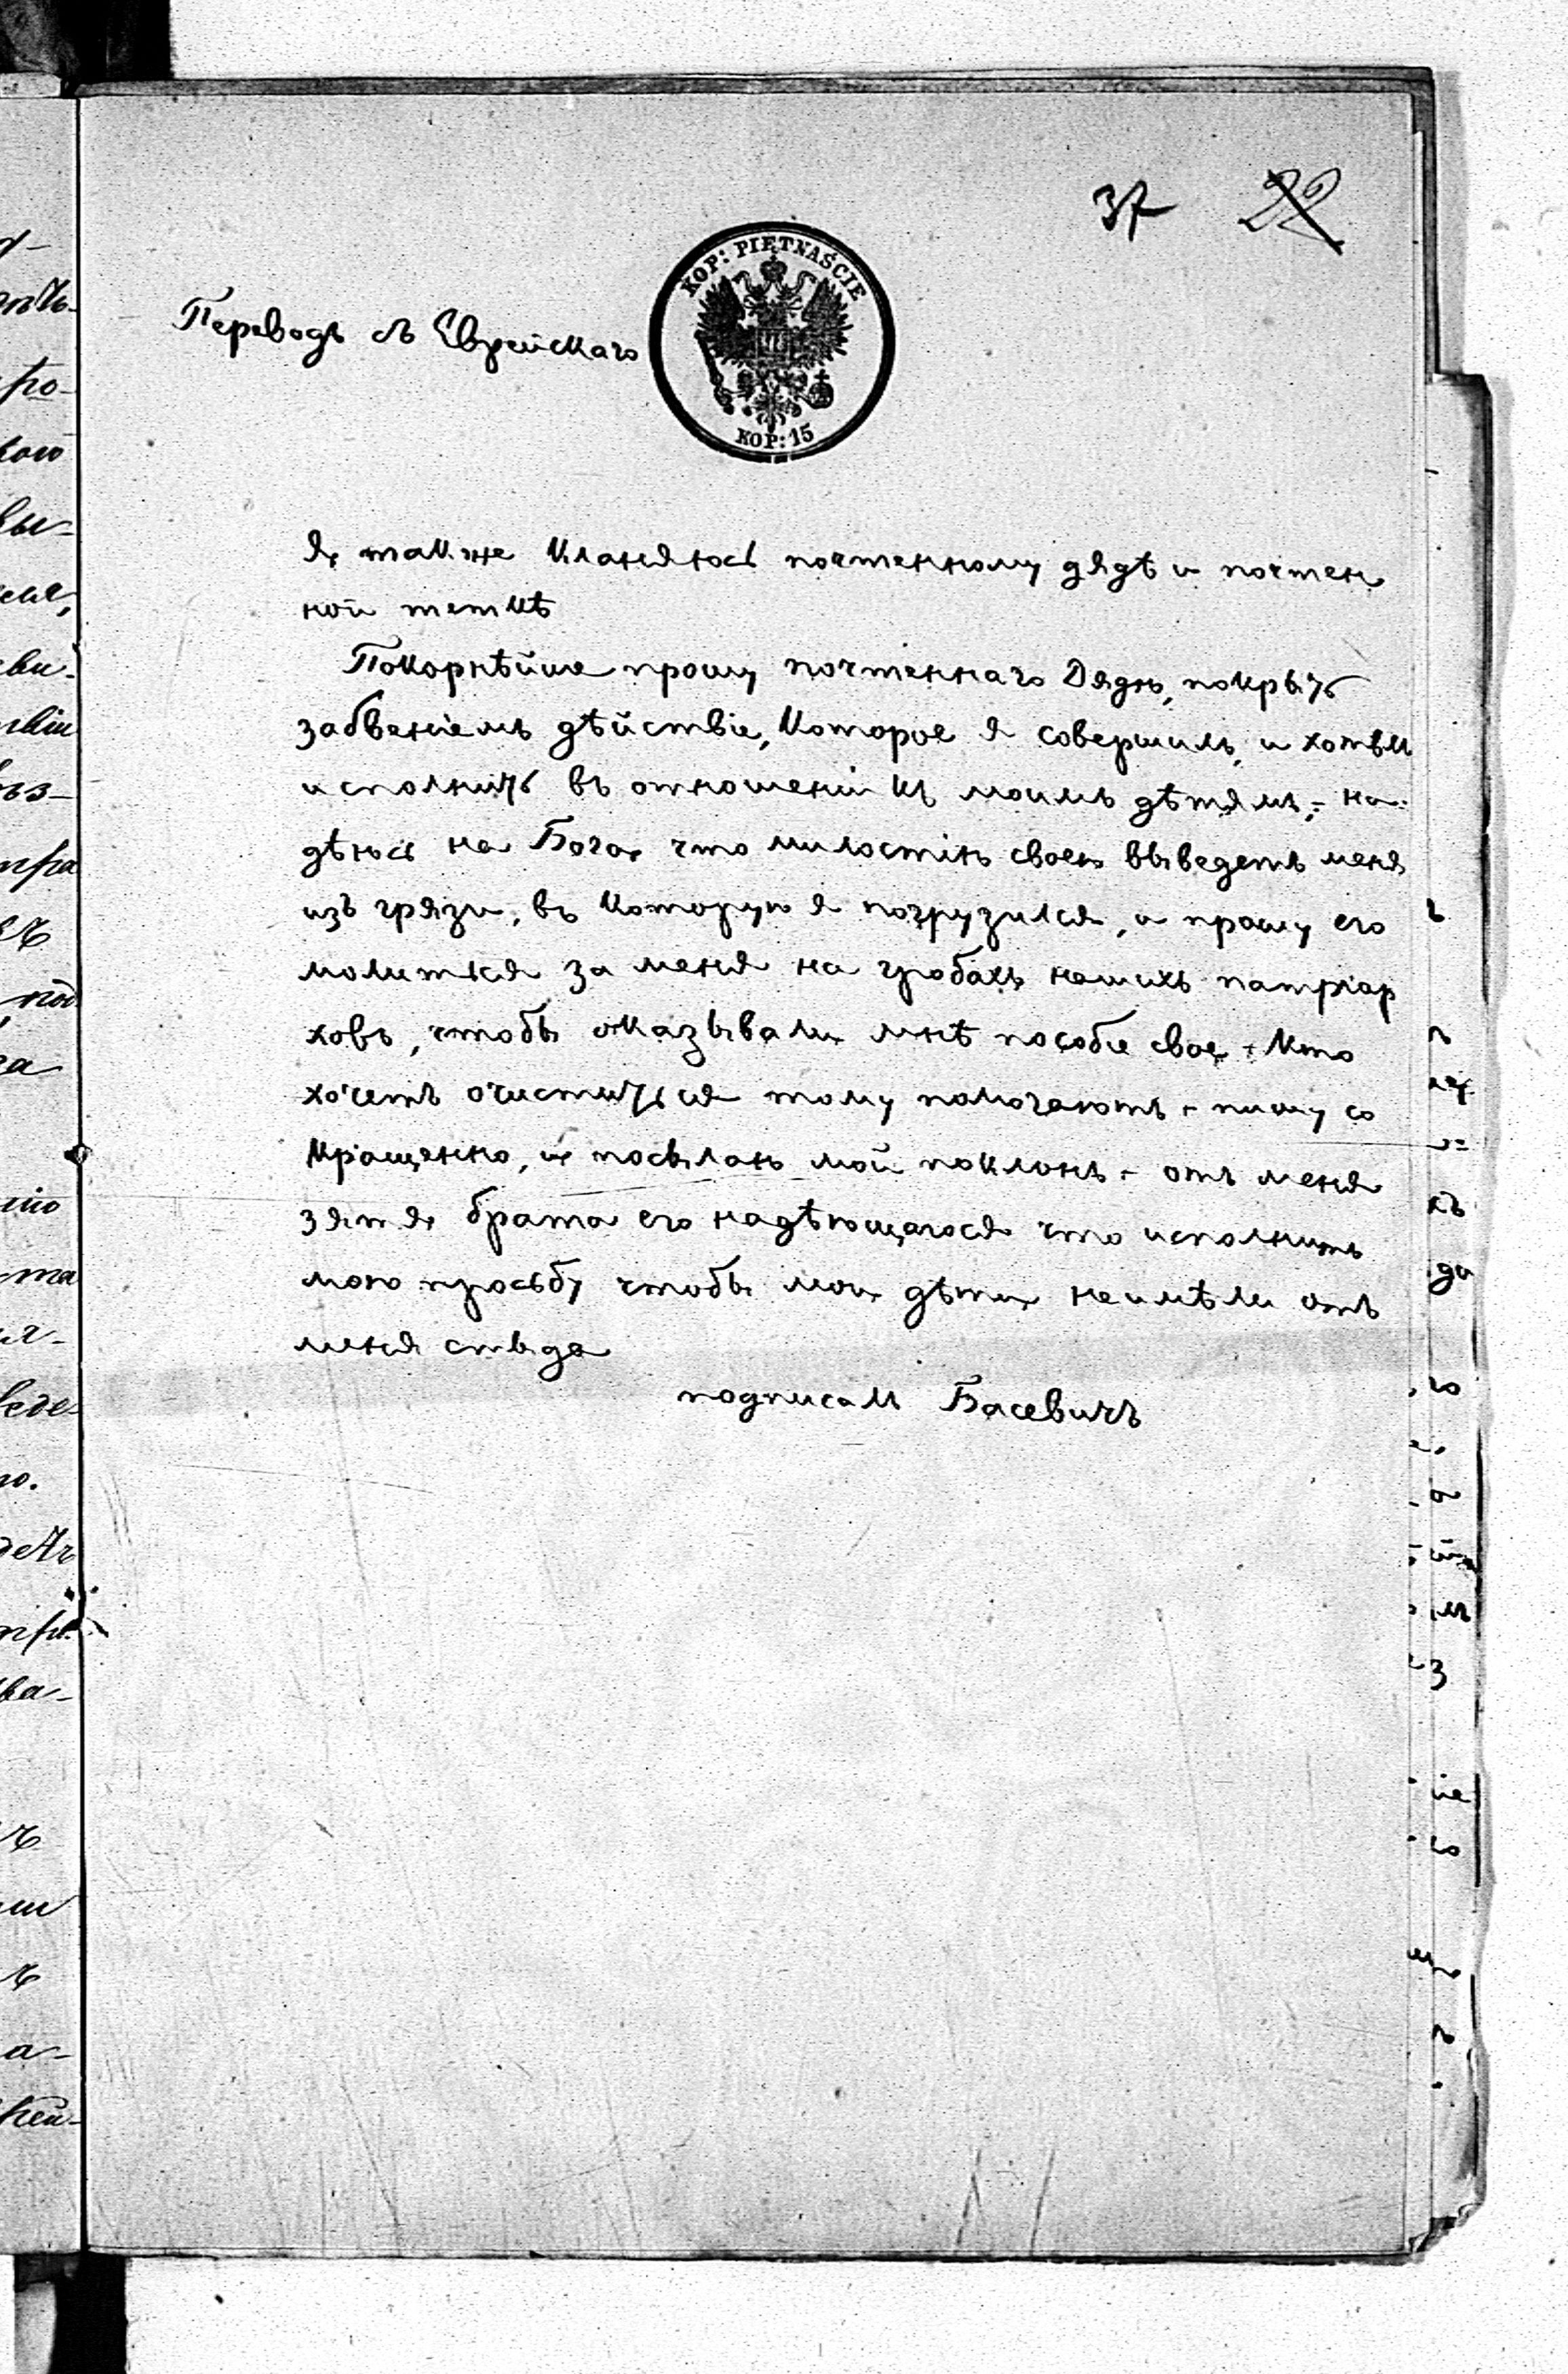 37 22
KOP: PIĘTNAŚCIE
KOP: 15
Переводъ съ Еврейскаго
Я также кланяюсь почтенному дядѣ и почтен
ной теткѣ
Покорнѣйше прошу почтеннаго Дядю, покрыть
забвеніемъ дѣйствіе, которое я совершилъ, и хотѣлъ
исполнить въ отношеніи къ моимъ дѣтямъ, - на-
дѣюсь на Бога что милостію своею выведетъ меня
изъ грязи, въ которую я погрузился, и прошу его
молиться за меня на гробахъ нашихъ патріар
ховъ, чтобы оказывали мнѣ пособіе свое - Кто
хочетъ очиститься тому помогаютъ - пишу со
кращенно, и посылаю мой поклонъ - отъ меня
зятя брата его надѣющагося что исполнитъ
мою просьбу чтобы мои дѣти неимѣли отъ
меня стыда
подписалъ Басевичъ